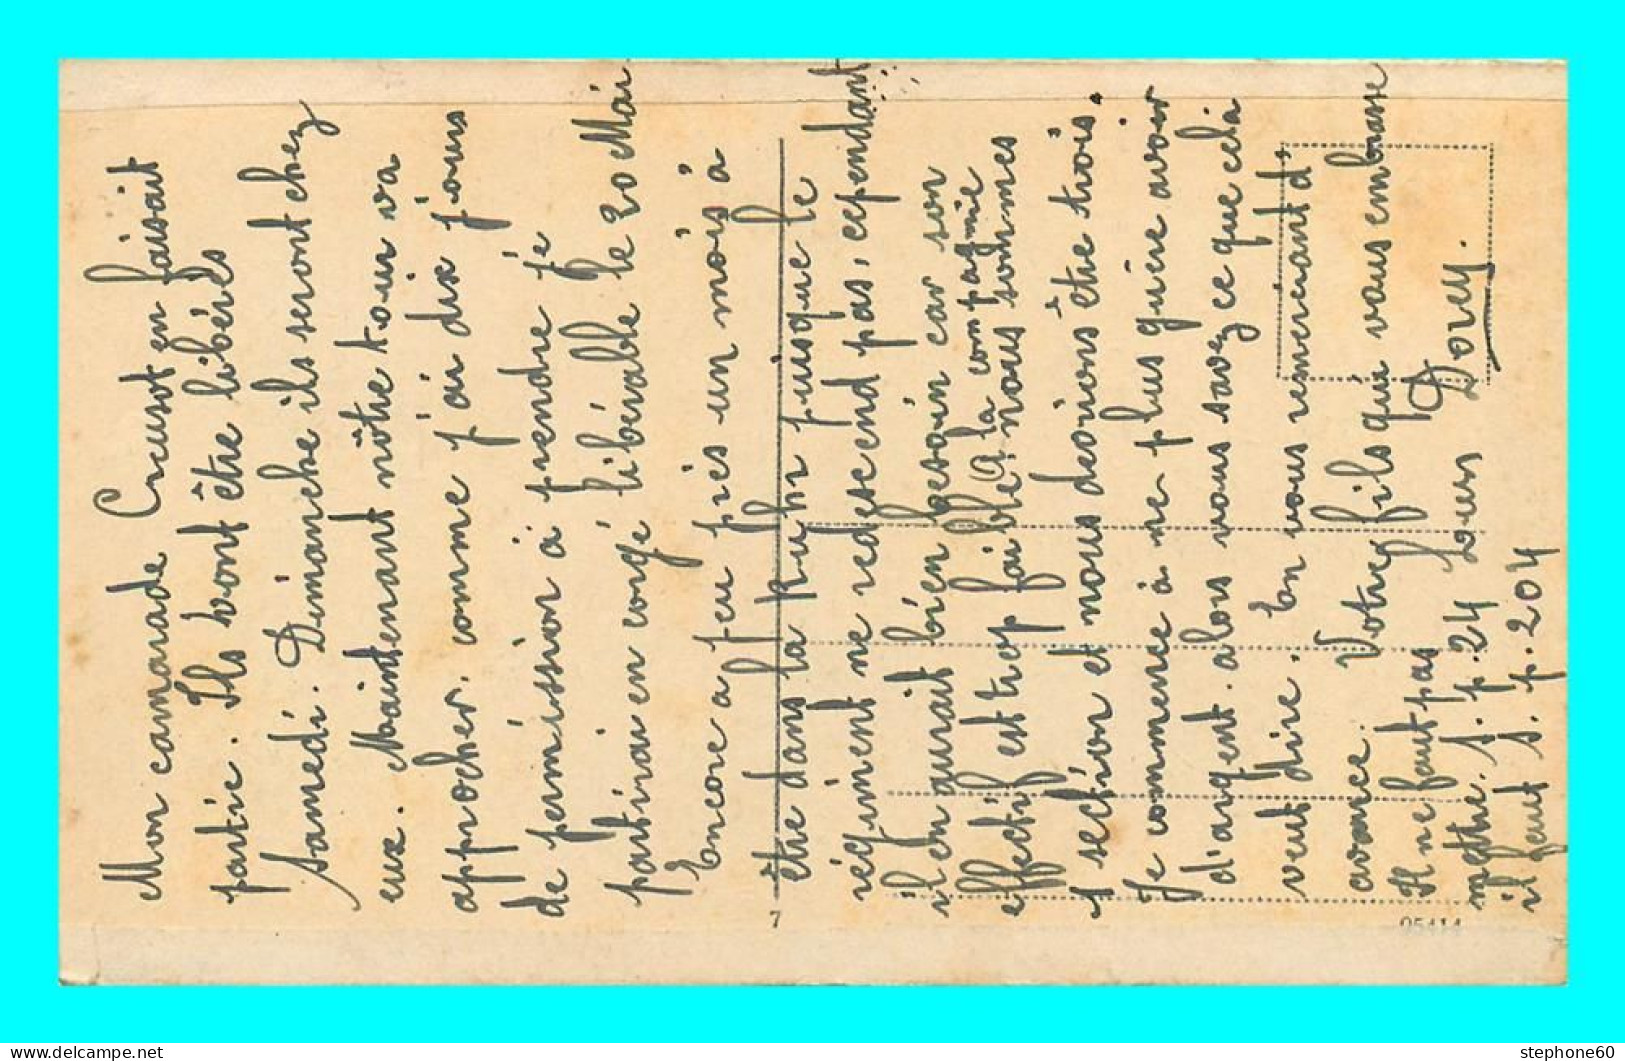 Mon camarade Creusot en faisait
partie. Ils vont être libérés
Samedi. Dimanche ils seront chez
eux. Maintenant nôtre tour va
approcher. comme j'ai dix jours
de permission à prendre je
partirai en congé libérable le 20 Mai
Encore a peu près un mois à
être dans la Ruhr puisque le
régiment ne redescend pas, cependant
il en aurait bien besoin car son
effectif est trop faible, a la compagnie
nous sommes
1 section et nous devrions être trois.
Je commence à ne plus guère avoir
d'argent. alors vous savez ce que celà
veut dire. En vous remerciant d'
avance. Votre fils qui vous embrasse
Il ne faut pas
mettre. s. p. 24
il faut s. p. 204
7
05414
stephone60